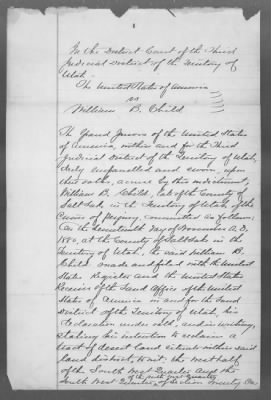 In the District Court of the Third
Judicial District of the Territory of
Utah.
The United States of America
vs
William B. Child
The Grand Jurors of the United States
of America, within and for the Third
Judicial District of the Territory of Utah,
duly empannelled and sworn, upon
their oaths, accuse by this indictment
William B. Child, late of the County of
Salt Lake, in the Territory of Utah, of the
Crime of Perjury, committed as follows:
On the Nineteenth day of November A.D.
1880, at the County of Salt Lake in the
Territory of Utah, the said William B.
Child made and filed with the United
States Register and the United States
Receiver of the Land Office of the United
States of America in and for the Land
District of the Territory of Utah, his
declaration under oath, and in writing,
stating his intention to reclaim a
tract of desert land situate within said
land district, to wit: the West half
of the South West Quarter and the
South West Quarter of the North West Quarter of Section twenty